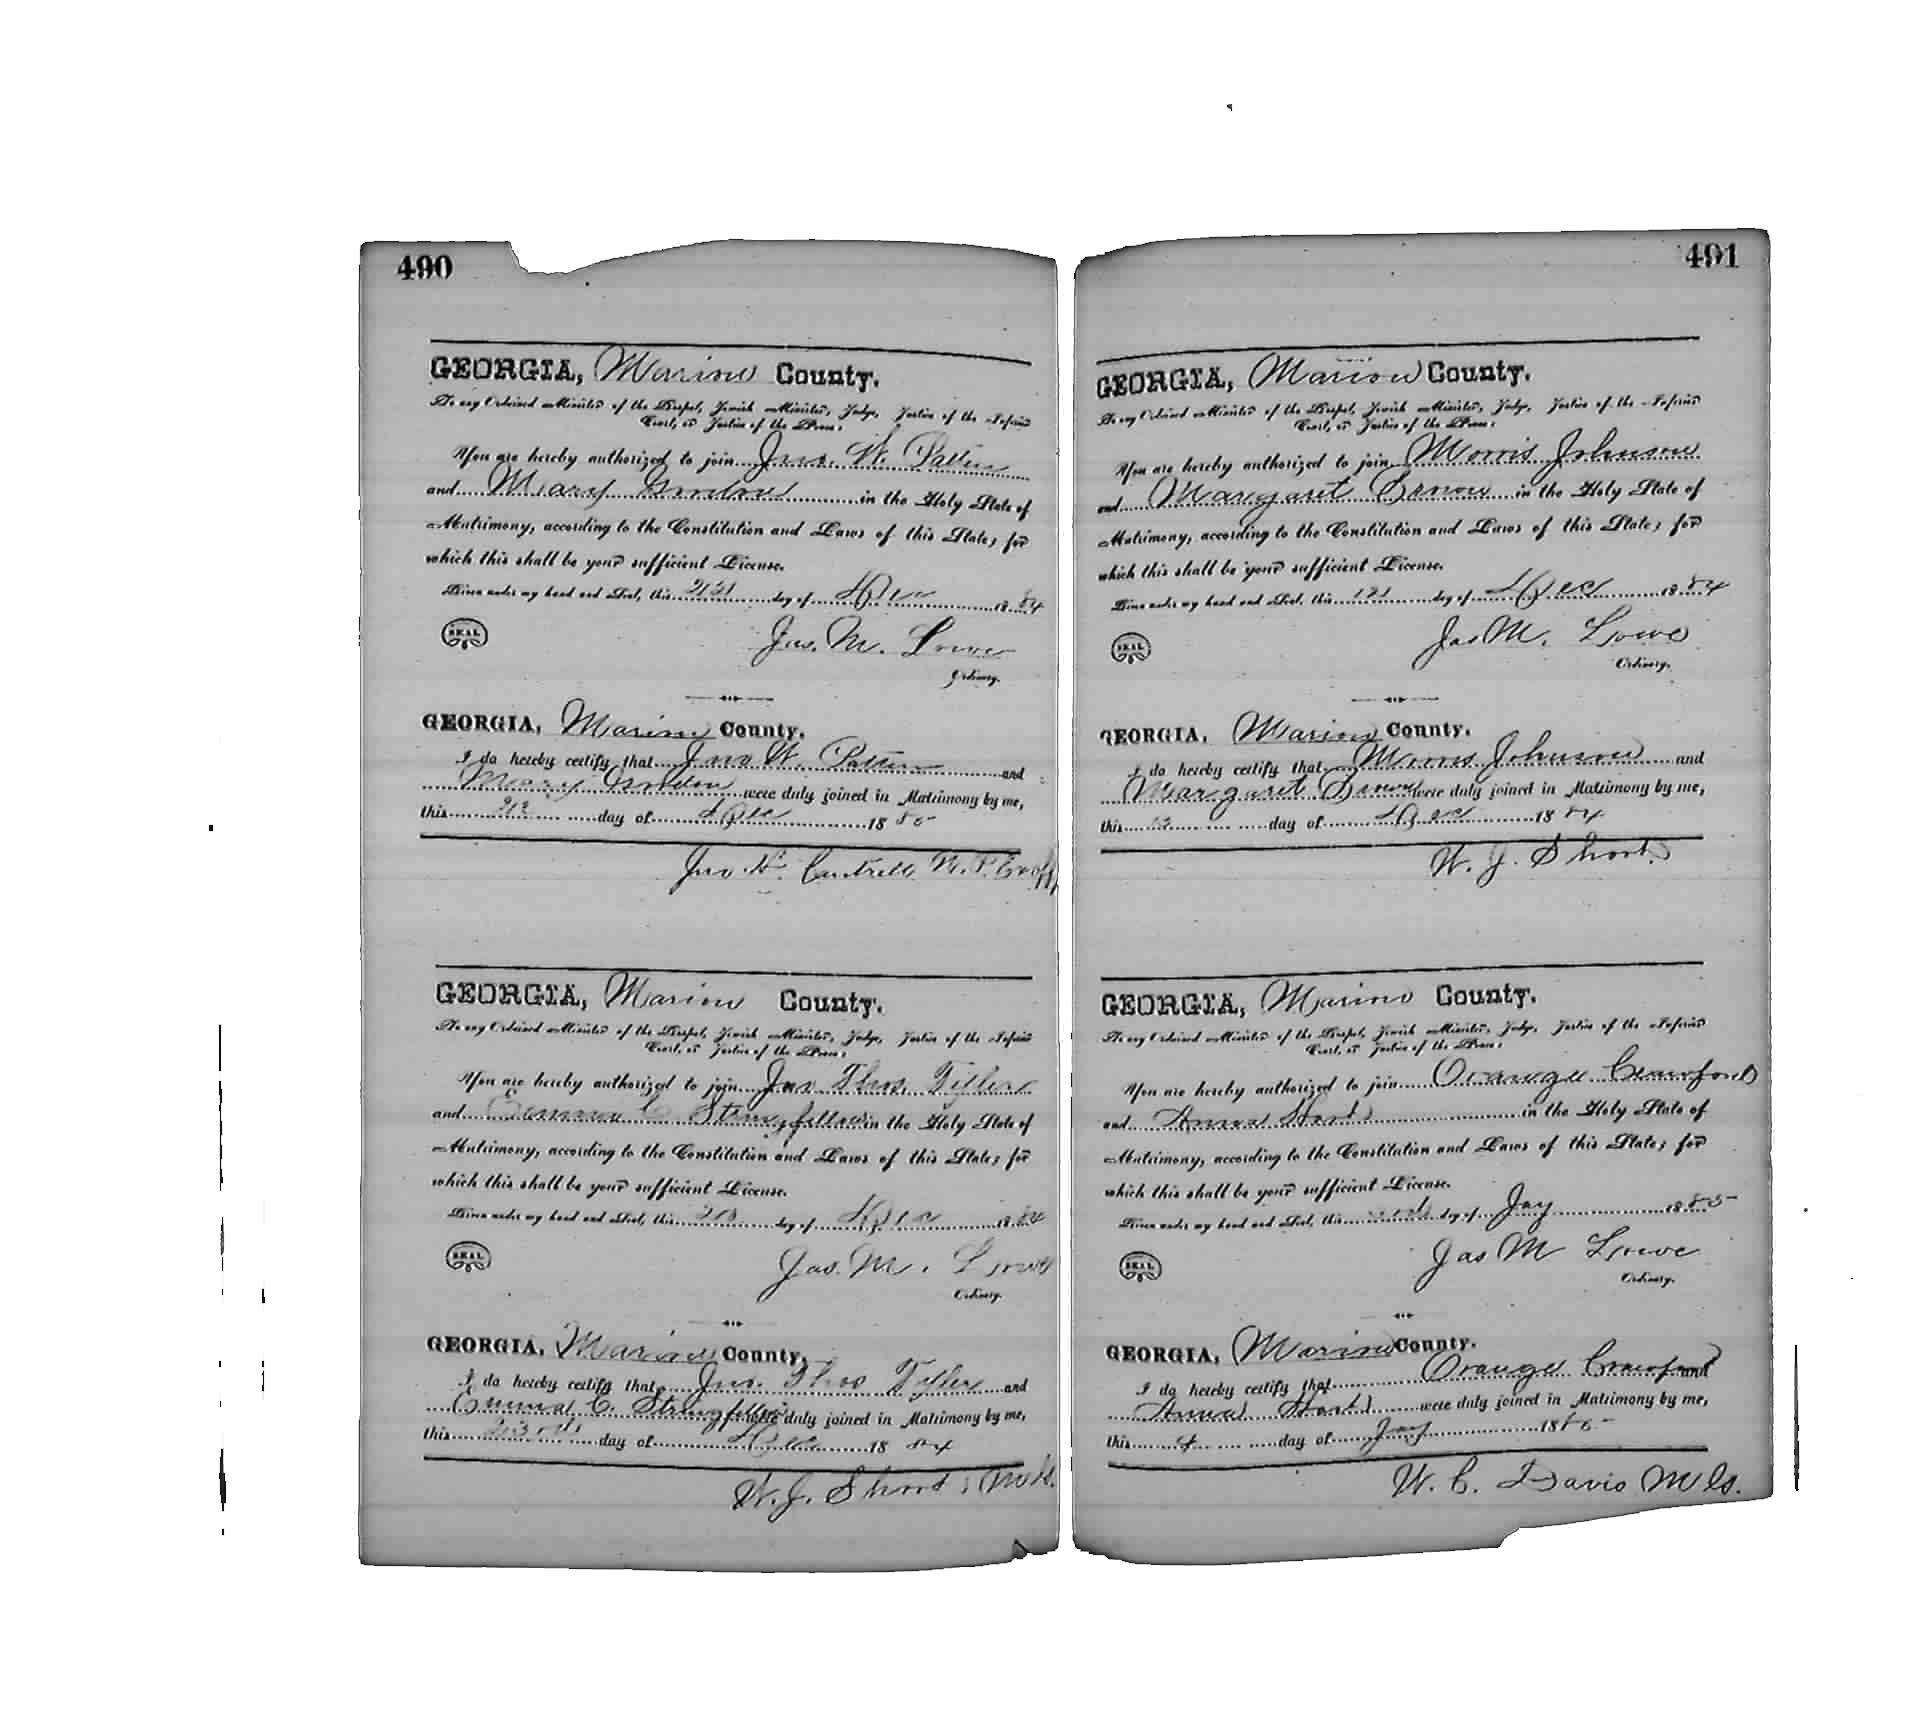 490
GEORGIA, Marion County.
To any Ordained Minister of the Gospel, Jewish Minister, Judge, Justice of the Inferior
Court, or Justice of the Peace:
You are hereby authorized to join Jno. W. Patten
and Mary in the Holy State of
Matrimony, according to the Constitution and Laws of this State; for
which this shall be your sufficient License.
Given under my hand and Seal, this day of Dec 1884
SEAL
Jas. M. Lowe
Ordinary.
GEORGIA, Marion County.
I do hereby certify that Jno W. Patten and
Mary were duly joined in Matrimony by me,
this day of Dec 188
Jno. Cantrell N. P.
GEORGIA, Marion County.
To any Ordained Minister of the Gospel, Jewish Minister, Judge, Justice of the Inferior
Court, or Justice of the Peace:
You are hereby authorized to join Jno Thos. Tyller
and Emma C. Stringfellow in the Holy State of
Matrimony, according to the Constitution and Laws of this State; for
which this shall be your sufficient License.
Given under my hand and Seal, this day of Dec 1884
SEAL
Jas. M. Lowe
Ordinary.
GEORGIA, Marion County.
I do hereby certify that Jno. Thos Tyller and
Emma C. Stringfellow were duly joined in Matrimony by me,
this 23rd day of Dec 1884
W. J. Short
491
GEORGIA, Marion County.
To any Ordained Minister of the Gospel, Jewish Minister, Judge, Justice of the Inferior
Court, or Justice of the Peace:
You are hereby authorized to join Morris Johnson
and Margaret Brown in the Holy State of
Matrimony, according to the Constitution and Laws of this State; for
which this shall be your sufficient License.
Given under my hand and Seal, this day of Dec 1884
SEAL
Jas M. Lowe
Ordinary.
GEORGIA, Marion County.
I do hereby certify that Morris Johnson and
Margaret Brown were duly joined in Matrimony by me,
this day of Dec 1884
W. J. Short
GEORGIA, Marion County.
To any Ordained Minister of the Gospel, Jewish Minister, Judge, Justice of the Inferior
Court, or Justice of the Peace:
You are hereby authorized to join Orange Crawford
and Anna in the Holy State of
Matrimony, according to the Constitution and Laws of this State; for
which this shall be your sufficient License.
Given under my hand and Seal, this day of Jay 1885
SEAL
Jas M Lowe
Ordinary.
GEORGIA, Marion County.
I do hereby certify that Orange Crawford and
Anna were duly joined in Matrimony by me,
this 4 day of Jay 1885
W. C. Davis